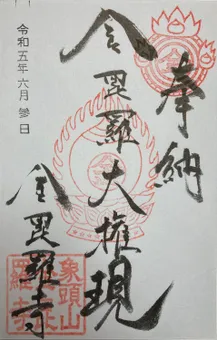 奉納
金毘羅大権現
金毘羅寺
令和五年六月參日
象頭山
羅寺